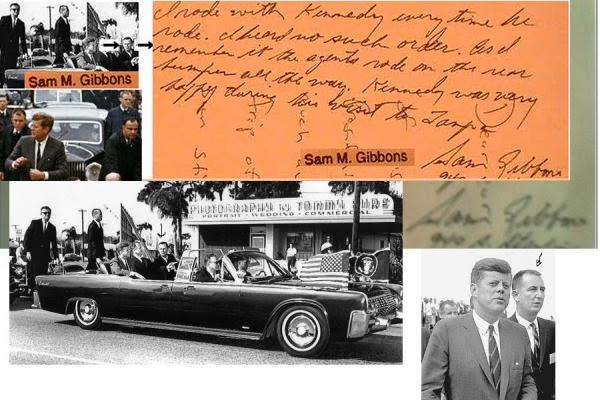 I rode with Kennedy every time he
rode. I heard no such order. As I
remember it the agents rode on the rear
bumper all the way. Kennedy was very
happy during his visit to Tampa
Sam Gibbons
Sam M. Gibbons
Sam M. Gibbons
Sam Gibbons
PHOTOGRAPHY by TOMMY
PORTRAIT - WEDDING - COMMERCIAL